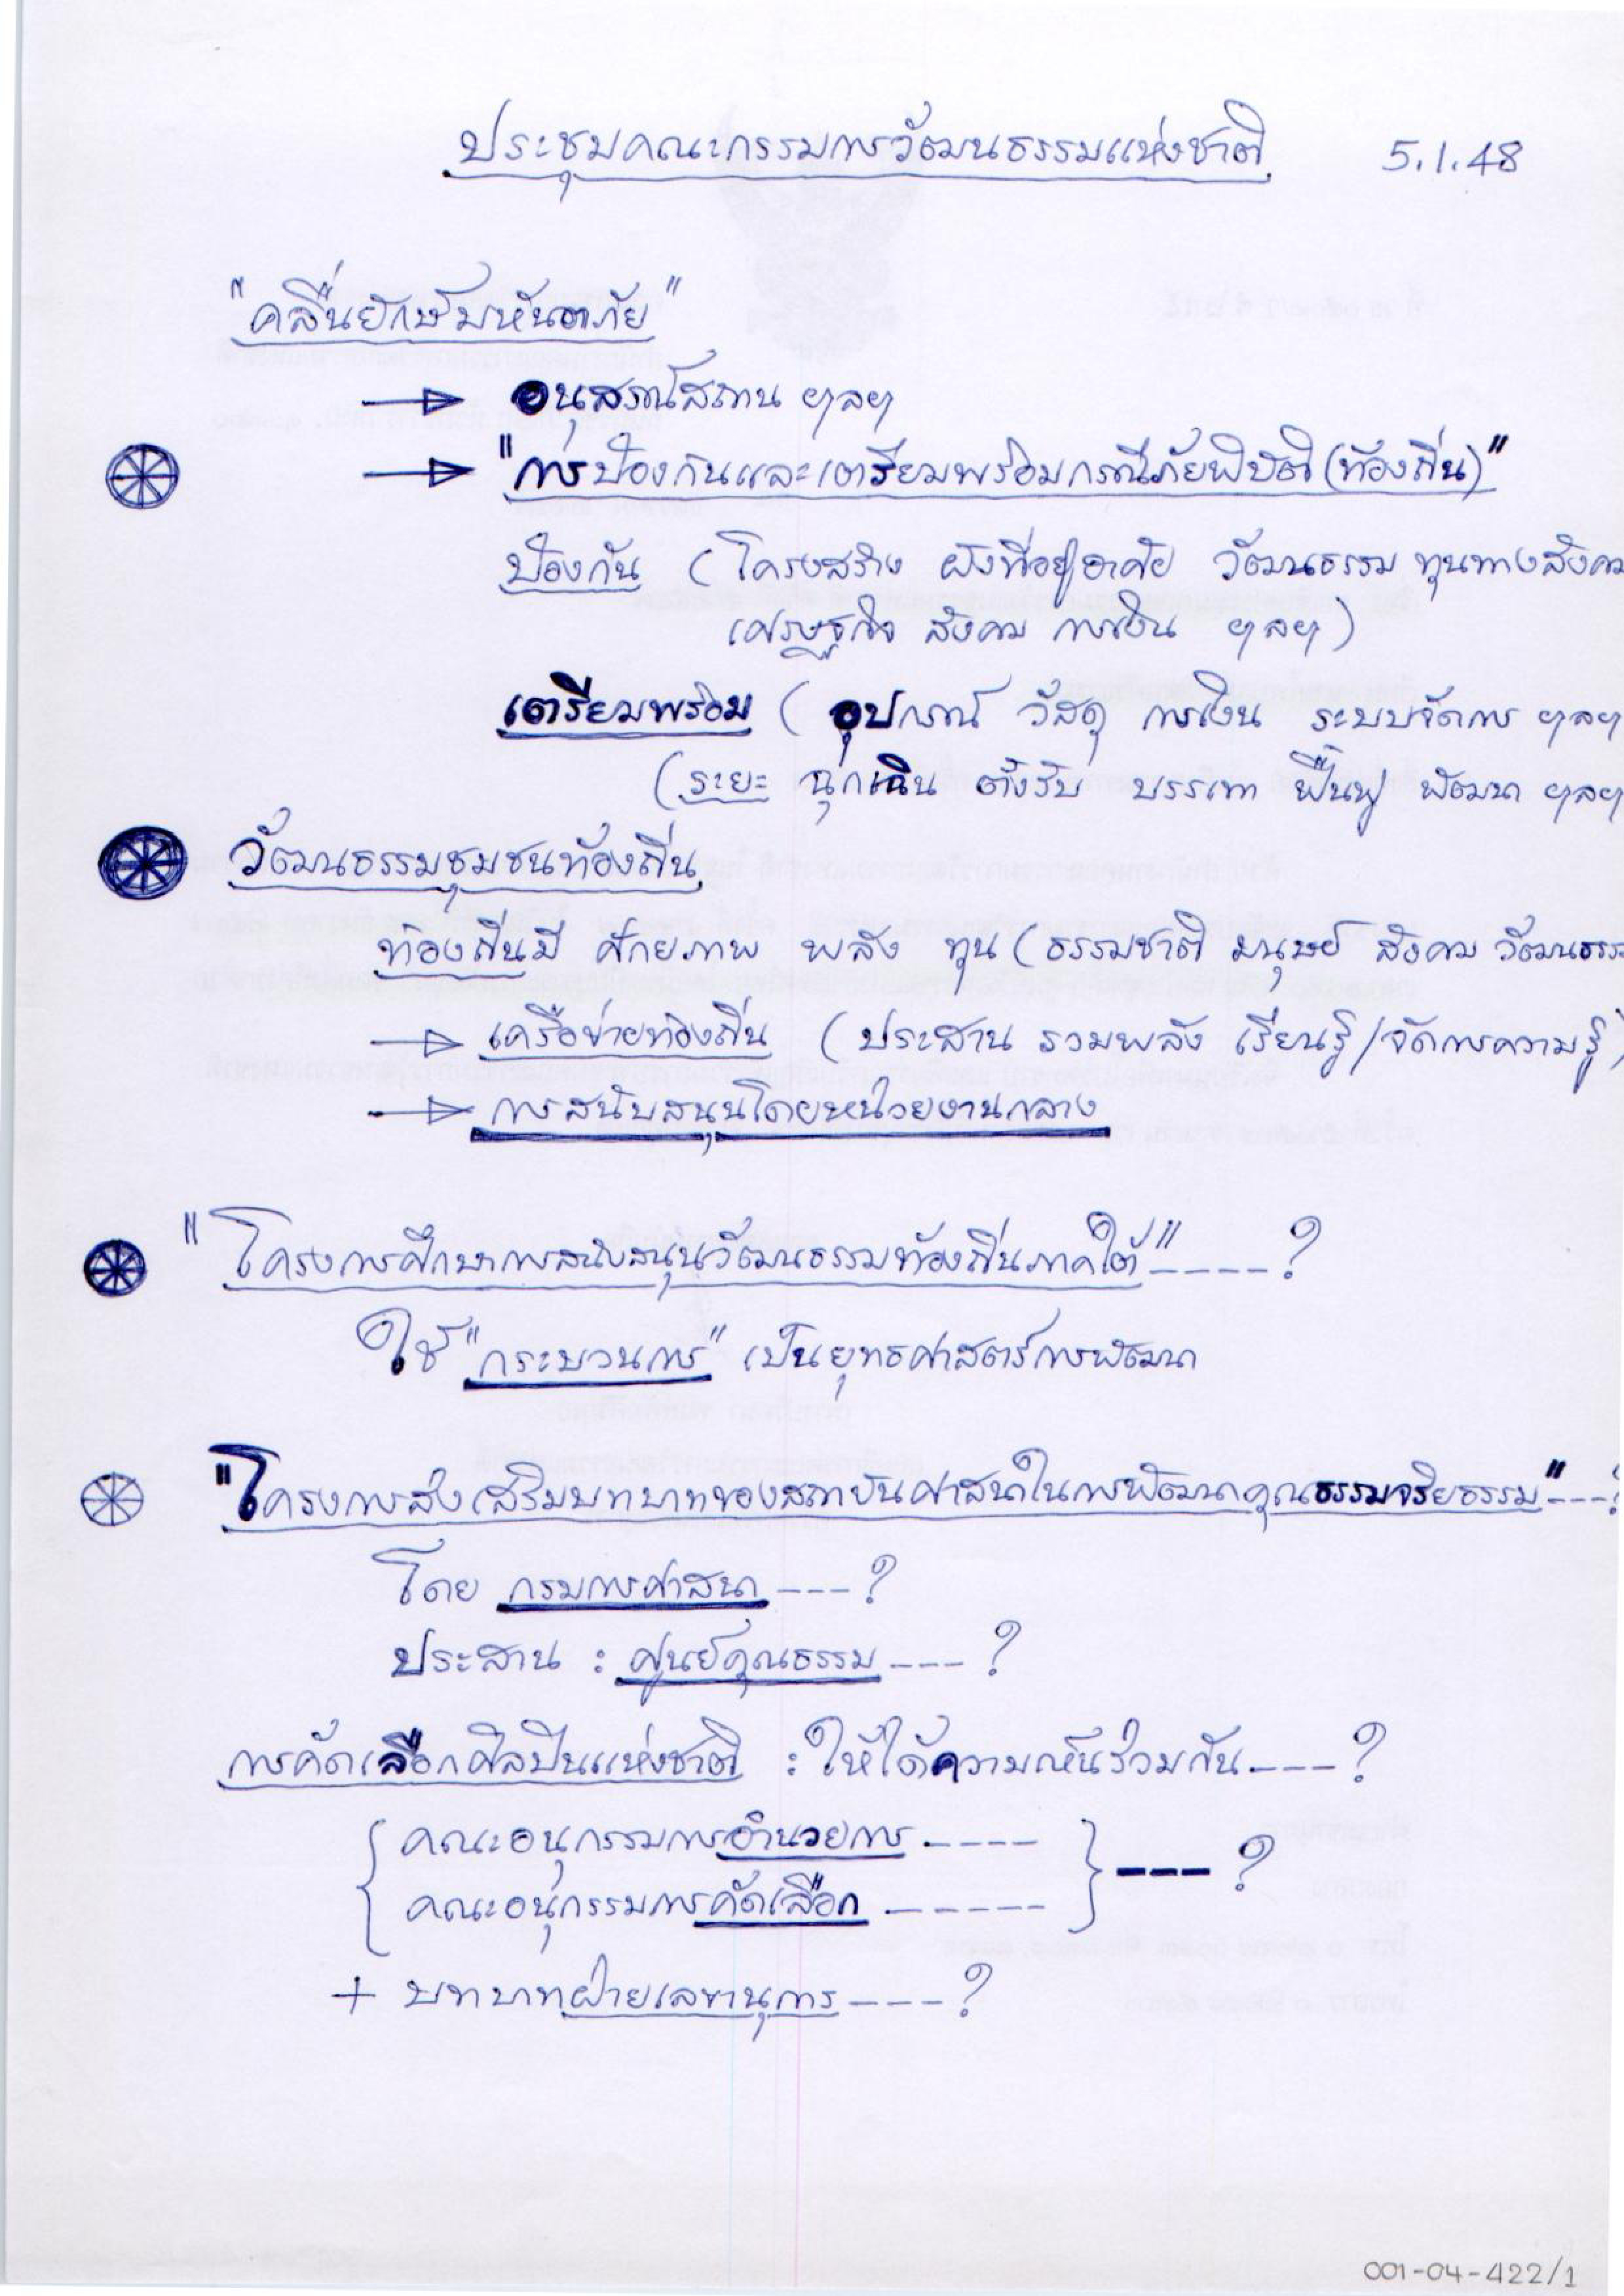 ประชุมคณะกรรมการวัฒนธรรมแห่งชาติ 5.1.48
"คลื่นยักษ์มหันตภัย"
→ อนุสรณ์สถาน ฯลฯ
→ "การป้องกันและเตรียมพร้อมกรณีภัยพิบัติ (ท้องถิ่น)"
ป้องกัน (โครงสร้าง ผังที่อยู่อาศัย วัฒนธรรม ทุนทางสังคม
เศรษฐกิจ สังคม การเงิน ฯลฯ)
เตรียมพร้อม (อุปกรณ์ วัสดุ การเงิน ระบบจัดการ ฯลฯ
(ระยะ ฉุกเฉิน ตั้งรับ บรรเทา ฟื้นฟู พัฒนา ฯลฯ
วัฒนธรรมชุมชนท้องถิ่น
ท้องถิ่นมี ศักยภาพ พลัง ทุน (ธรรมชาติ มนุษย์ สังคม วัฒนธรรม
→ เครือข่ายท้องถิ่น (ประสาน รวมพลัง เรียนรู้/จัดการความรู้)
→ การสนับสนุนโดยหน่วยงานกลาง
"โครงการศึกษาการสนับสนุนวัฒนธรรมท้องถิ่นภาคใต้" ----- ?
ใช้ "กระบวนการ" เป็นยุทธศาสตร์การพัฒนา
"โครงการส่งเสริมบทบาทของสถาบันศาสนาในการพัฒนาคุณธรรมจริยธรรม" --- ?
โดย กรมการศาสนา --- ?
ประสาน : ศูนย์คุณธรรม --- ?
การคัดเลือกศิลปินแห่งชาติ : ให้ได้ความเห็นร่วมกัน ---- ?
{ คณะอนุกรรมการอำนวยการ ----- } --- ?
{ คณะอนุกรรมการคัดเลือก ------ }
+ บทบาทฝ่ายเลขานุการ ---- ?
001-04-422/1